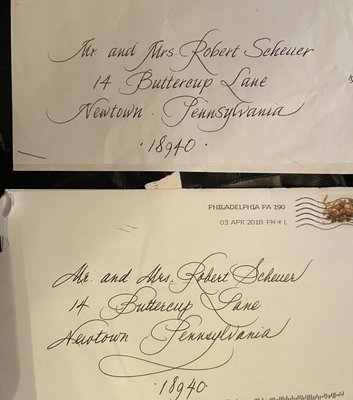 Mr and Mrs. Robert Scheuer
14 Buttercup Lane
Newtown Pennsylvania
·18940·
PHILADELPHIA PA 190
03 APR 2018 PM 4 L
Mr. and Mrs. Robert Scheuer
14 Buttercup Lane
Newtown Pennsylvania
·18940·